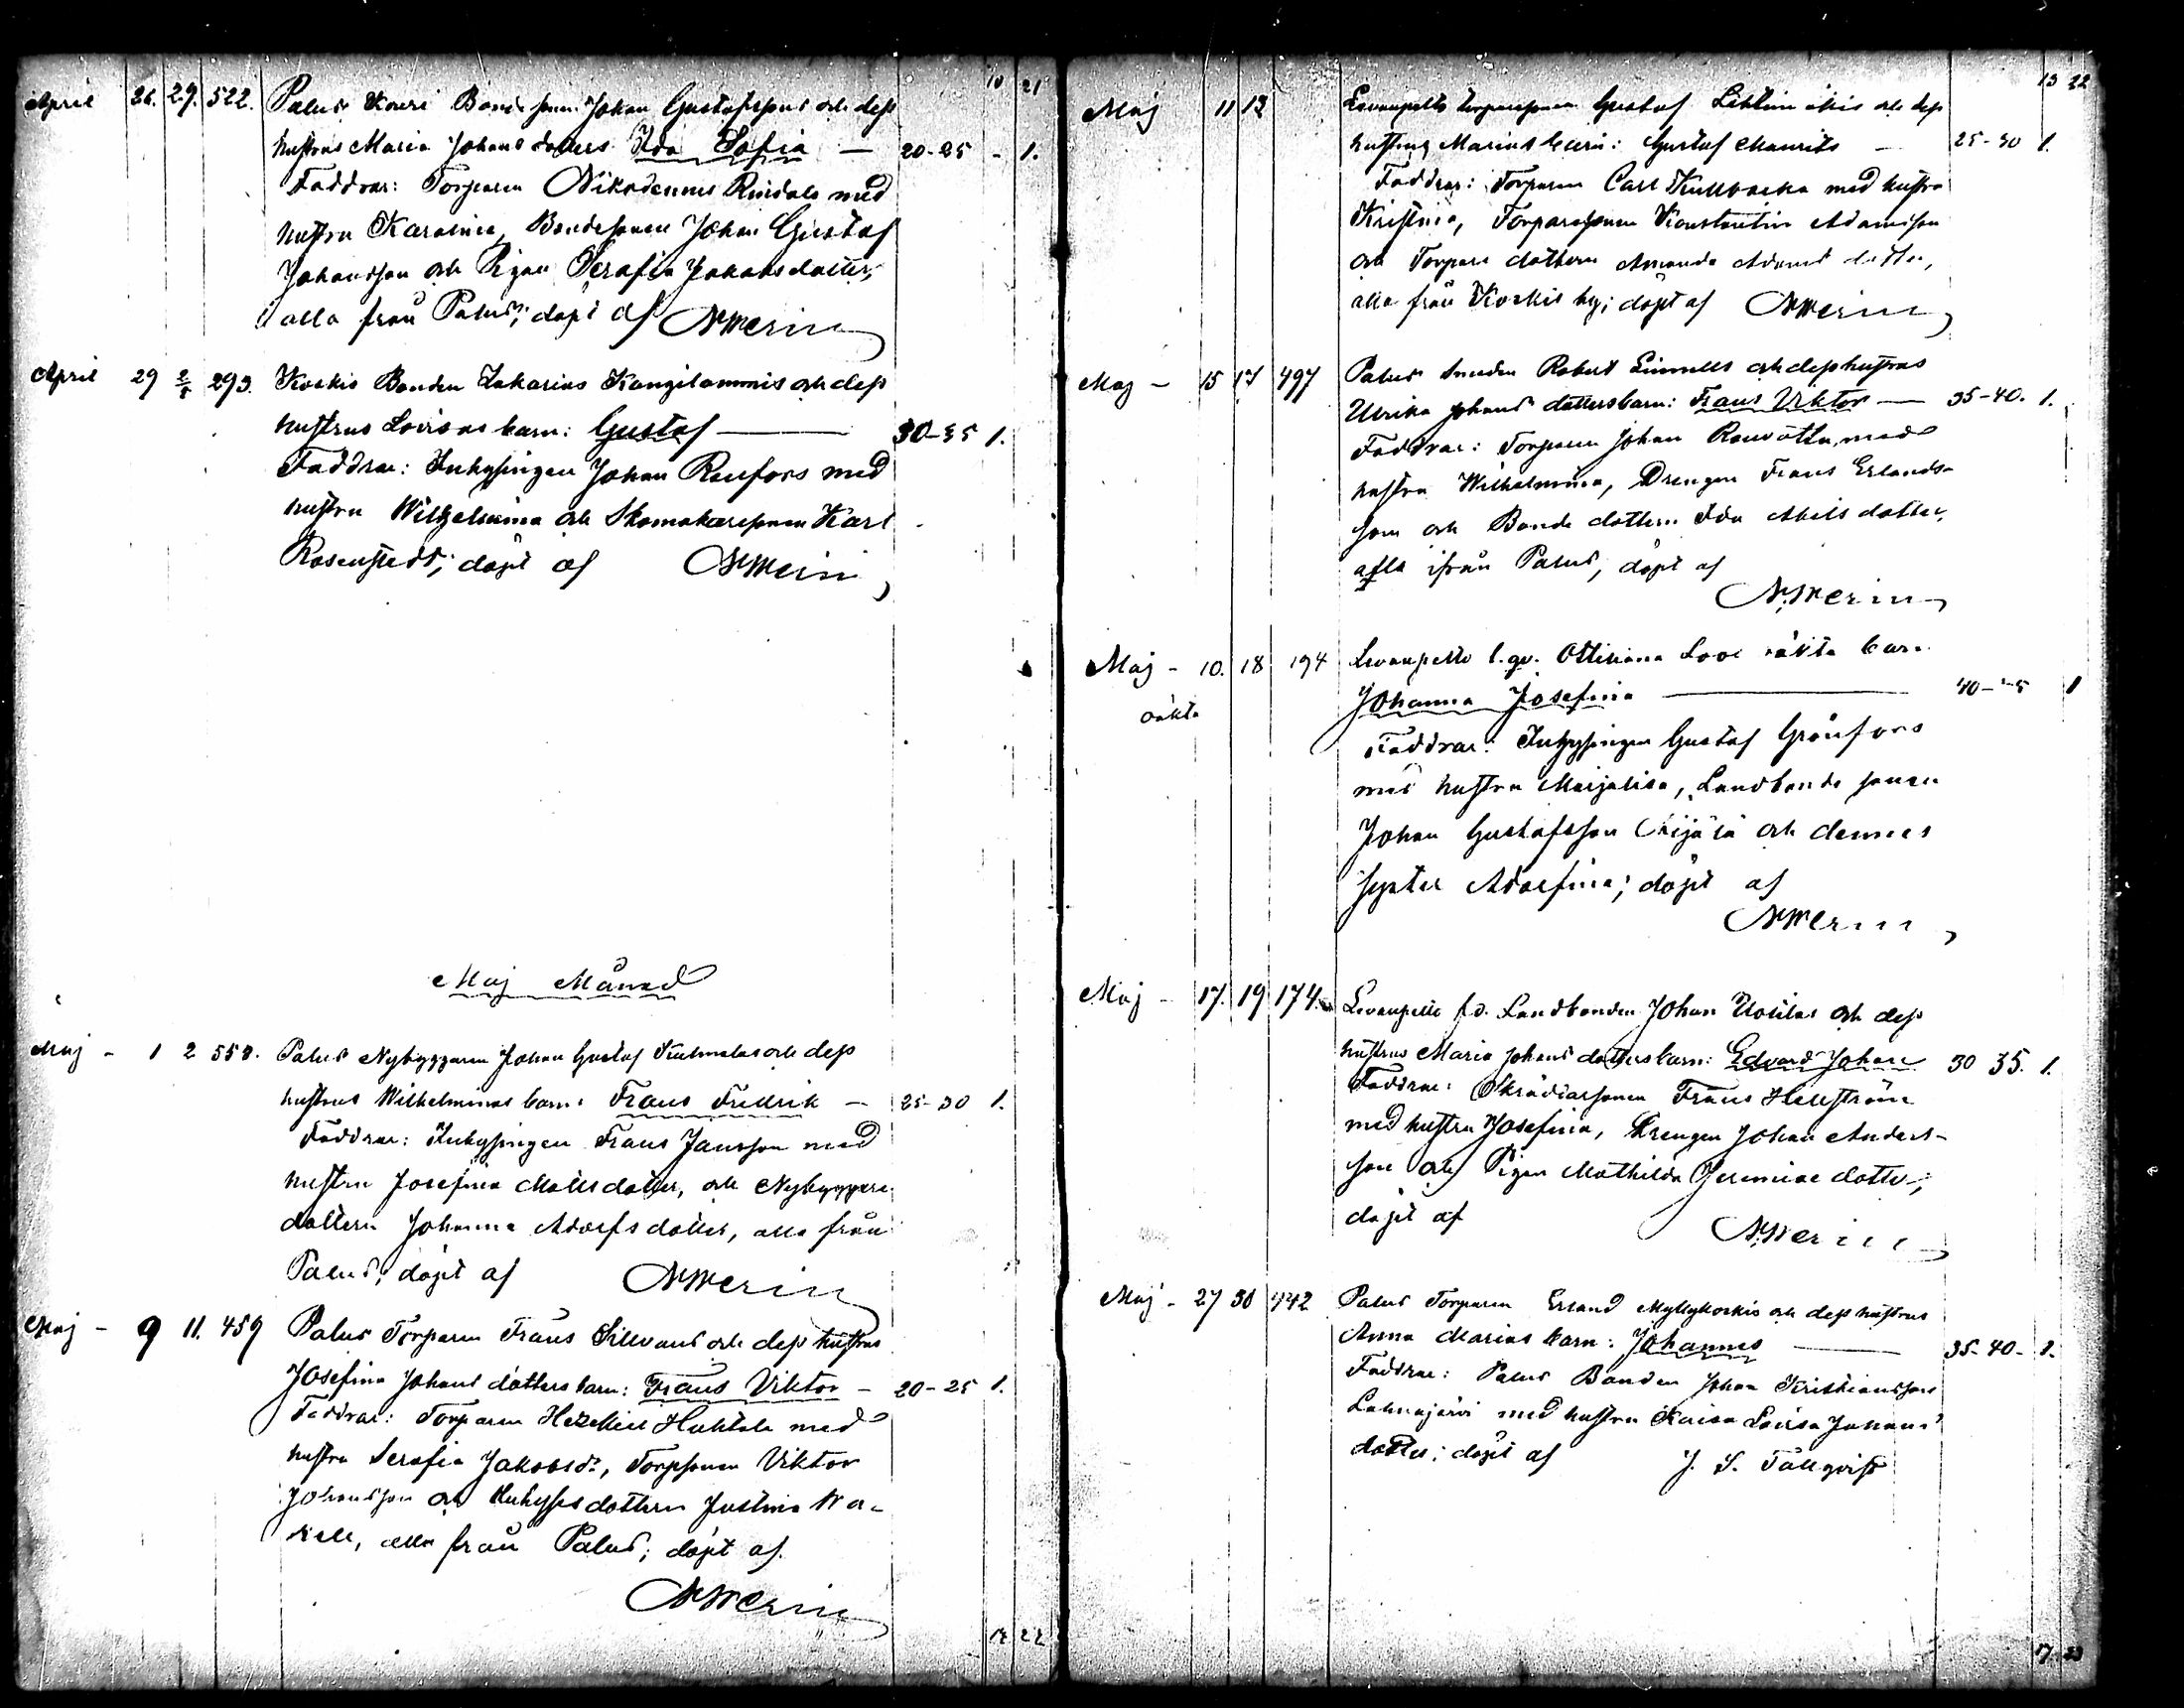 10 21
April 26. 29. 522. Palus Kauri Bonde sonen Johan Gustafssons och dess
hustrus Maria Johans dotters Ida Sofia — 20-25 - 1.
Faddrar: Torparen Nikodemus Rindals med
hustru Karolina, Bondesonen Johan Gustaf
Johansson och Pigan Serafia Jakobsdotter,
alla från Palus; döpt af
April 29 2/5 293. Koskis Bonden Zakarias Kangilammis och dess
hustrus Lovisas barn: Gustaf — 30-35 1.
Faddrar: Inhysingen Johan Renfors med
hustru Wilhelmina och Skomakaresonen Karl
Rosenstedt; döpt af
Maj Månad
Maj - 1 2 558. Palus Nybyggaren Johan Gustaf och dess
hustrus Wilhelminas barn: Frans Fredrik — 25-30 1.
Faddrar: Inhysingen Frans Jansson med
hustru Josefina Matts dotter, och Nybyggare
dottern Johanna Adolfs dotter, alla från
Palus; döpt af
Maj - 9 11. 459 Palus Torparen Frans Sillvans och dess hustrus
Josefina Johans dotters barn: Frans Viktor - 20-25 1.
Faddrar: Torparen Hezekiel Huhtala med
hustru Serafia Jakobsdr, Torpsonen Viktor
Johansson och Inhyses dottern Justina
alla från Palus; döpt af.
12 22
13 22
Maj 11 13 Levanpelto torparesonen Gustaf och dess
hustrus Marias barn: Gustaf Maurits — 25-30 1.
Faddrar: Torparen Carl Kullbacka med hustru
Kristina, Torparesonen Konstantin Adamsson
och Torpare dottern Amanda Adams dotter,
alla från Koskis by; döpt af
Maj - 15 17 497 Palus Smeden Robert Linnells och dess hustrus
Ulrika Johans dotters barn: Frans Viktor — 35-40. 1.
Faddrar: Torparen Johan med
hustru Wilhelmina, Drengen Frans Erlands-
son och Bonde dottern Ida Abels dotter,
alla ifrån Palus, döpt af
Maj - 10. 18 194 Levanpelto l.qv. Ottiliana oäkta barn
oäkta Johanna Josefina — 40-45 1
Faddrar: Inhysingen Gustaf Grönfors
med hustru Maijalisa, Landbonde sonen
Johan Gustafsson och dennes
syster Adolfina; döpt af
Maj - 17. 19 174. Levanpelto f.d. Landbonden Johan Uotilas och dess
hustrus Maria Johans dotters barn: Edvard Johan 30 35. 1.
Faddrar: Skräddarsonen Frans Hellström
med hustru Josefina, Drengen Johan Anders-
son och Pigan Mathilda Jeremiae dotter;
döpt af
Maj - 27 30 442 Palus Torparen Erland Myllykoskis och dess hustrus
Anna Marias barn: Johannes — 35-40- 1.
Faddrar: Palus Bonden Johan Kristiansson
Lahnajärvi med hustru Kaisa Lovisa Johans
dotter; döpt af J. S. Tallqvist
17 23